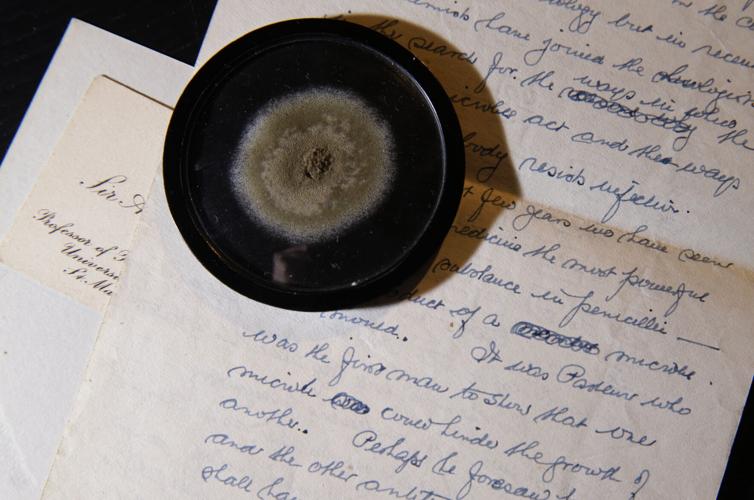 ology but in recen
have joined the
the search for the ways in which
microbe act and the ways
body resists infection.
t few years we have seen
medicine the most powerful
substance in penicillin —
duct of a microbe.
It was Pasteur who
was the first man to show that one
microbe could hinder the growth of
another. Perhaps he foresaw
and the other antib
shall ha
Sir A
Professor of
Univers
St. Ma